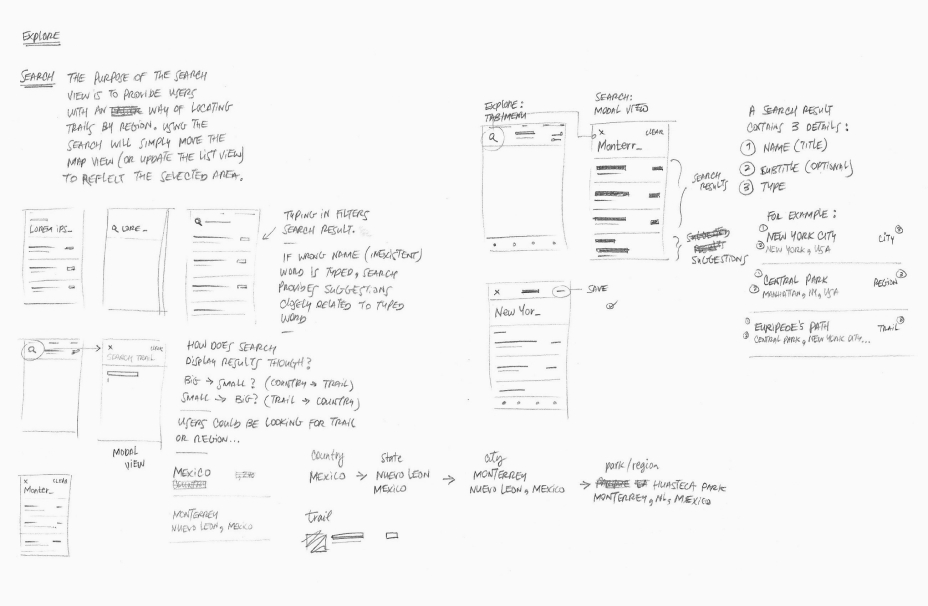 EXPLORE
SEARCH
THE PURPOSE OF THE SEARCH
VIEW IS TO PROVIDE USERS
WITH AN WAY OF LOCATING
TRAILS BY REGION. USING THE
SEARCH WILL SIMPLY MOVE THE
MAP VIEW (OR UPDATE THE LIST VIEW)
TO REFLECT THE SELECTED AREA.
LOREM IPS_
LORE_
TYPING IN FILTERS
SEARCH RESULT.
IF WRONG NAME (INEXISTENT)
WORD IS TYPED, SEARCH
PROVIDES SUGGESTIONS
CLOSELY RELATED TO TYPED
WORD
X CLEAR
SEARCH TRAIL
MODAL
VIEW
HOW DOES SEARCH
DISPLAY RESULTS THOUGH?
BIG → SMALL? (COUNTRY → TRAIL)
SMALL → BIG? (TRAIL → COUNTRY)
USERS COULD BE LOOKING FOR TRAIL
OR REGION...
X CLEAR
Monter_
MEXICO
MONTERREY
NUEVO LEON, MEXICO
Country
MEXICO →
State
NUEVO LEON
MEXICO
→
city
MONTERREY
NUEVO LEON, MEXICO
→
park/region
HUASTECA PARK
MONTERREY, NL, MEXICO
trail
EXPLORE:
TAB/MENU
SEARCH:
MODAL VIEW
X CLEAR
Monterr_
SEARCH
RESULTS
SUGGESTIONS
X
SAVE
New Yor_
A SEARCH RESULT
CONTAINS 3 DETAILS:
1 NAME (TITLE)
2 SUBTITLE (OPTIONAL)
3 TYPE
FOR EXAMPLE:
1
NEW YORK CITY
2 NEW YORK, USA
CITY 3
1 CENTRAL PARK
2 MANHATTAN, NY, USA
REGION 3
1 EURIPEDE'S PATH
2 CENTRAL PARK, NEW YORK CITY...
TRAIL 3